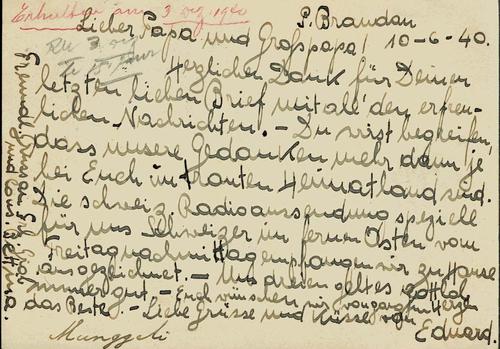 Erhalten am 3 Dez 1940
P. Brandan
Lieber Papa und Grosspapa! 10-6-40.
Reçu 3. Dez
Herzlichen Dank für Deinen
letzten lieben Brief mit all' den erfreu-
lichen Nachrichten. - Du wirst begreifen,
dass unsere Gedanken mehr dann je
bei Euch im trauten Heimatland sind.
Die schweiz. Radioaussendung speziell
für uns Schweizer im fernen Osten vom
Freitagnachmittag empfangen wir zu Hause
ausgezeichnet. - Uns dreien geht es gottlob
immer gut. - Euch wünschen wir von ganzem Herzen
das Beste. - Liebe Grüsse und Küsse von
Eduard.
Munggeli
Freundl. Gruss an Frl. Grau
und Cous. Bettina.